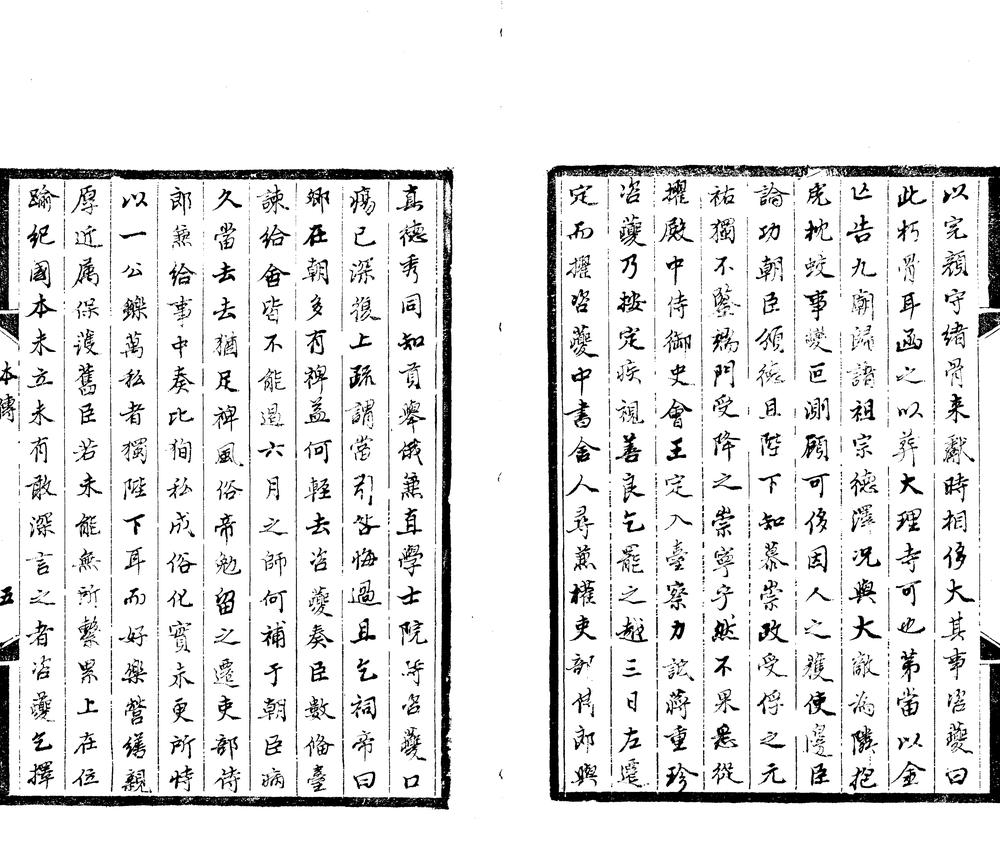 以完顏守緒骨来獻時相侈大其事咨夔曰
此朽骨耳函之以葬大理寺可也第當以金
亡告九廟歸諸祖宗德澤况與大敵為隣抱
虎枕蛟事變叵測顧可侈因人之獲使邊臣
論功朝臣頌德且陛下知慕崇政受俘之元
祐獨不鑒端門受降之崇寧乎然不果悉從
擢殿中侍御史會王定入臺察力詆蔣重珍
咨夔乃按定疾視善良乞罷之越三日左遷
定而擢咨夔中書舍人尋兼權吏部侍郎與
真德秀同知貢舉俄兼直學士院時咨夔口
瘍已深復上疏謂當引咎悔過且乞祠帝曰
卿在朝多有裨益何輕去咨夔奏臣數偹臺
諫給會皆不能遏六月之師何補于朝臣病
久當去去猶足裨風俗帝勉留之遷吏部侍
郎兼給事中奏比徇私成俗化實未更所恃
以一公鑠萬私者獨陛下耳而好樂營繕親
厚近属保護舊臣若未能無所繫累上在位
踰紀國本未立未有敢深言之者咨夔乞擇
本傳
五